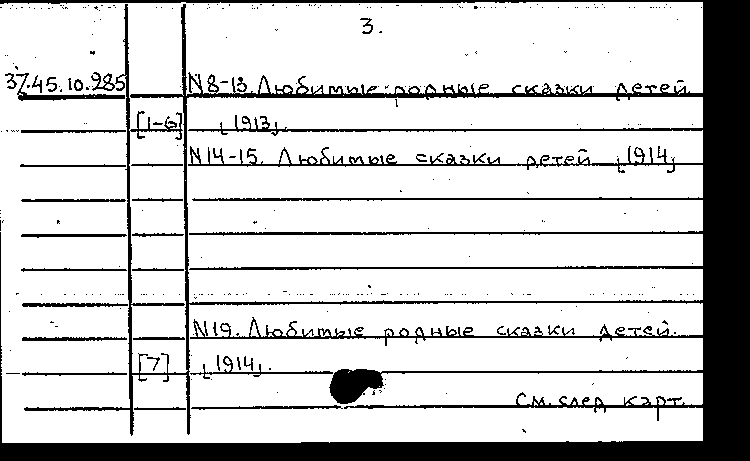 3.
37.45.10.285 N8-13. Любимые родные сказки детей
[1-6] [1913].
N14-15. Любимые сказки детей [1914]
N19. Любимые родные сказки детей.
[7] [1914].
См. след карт.